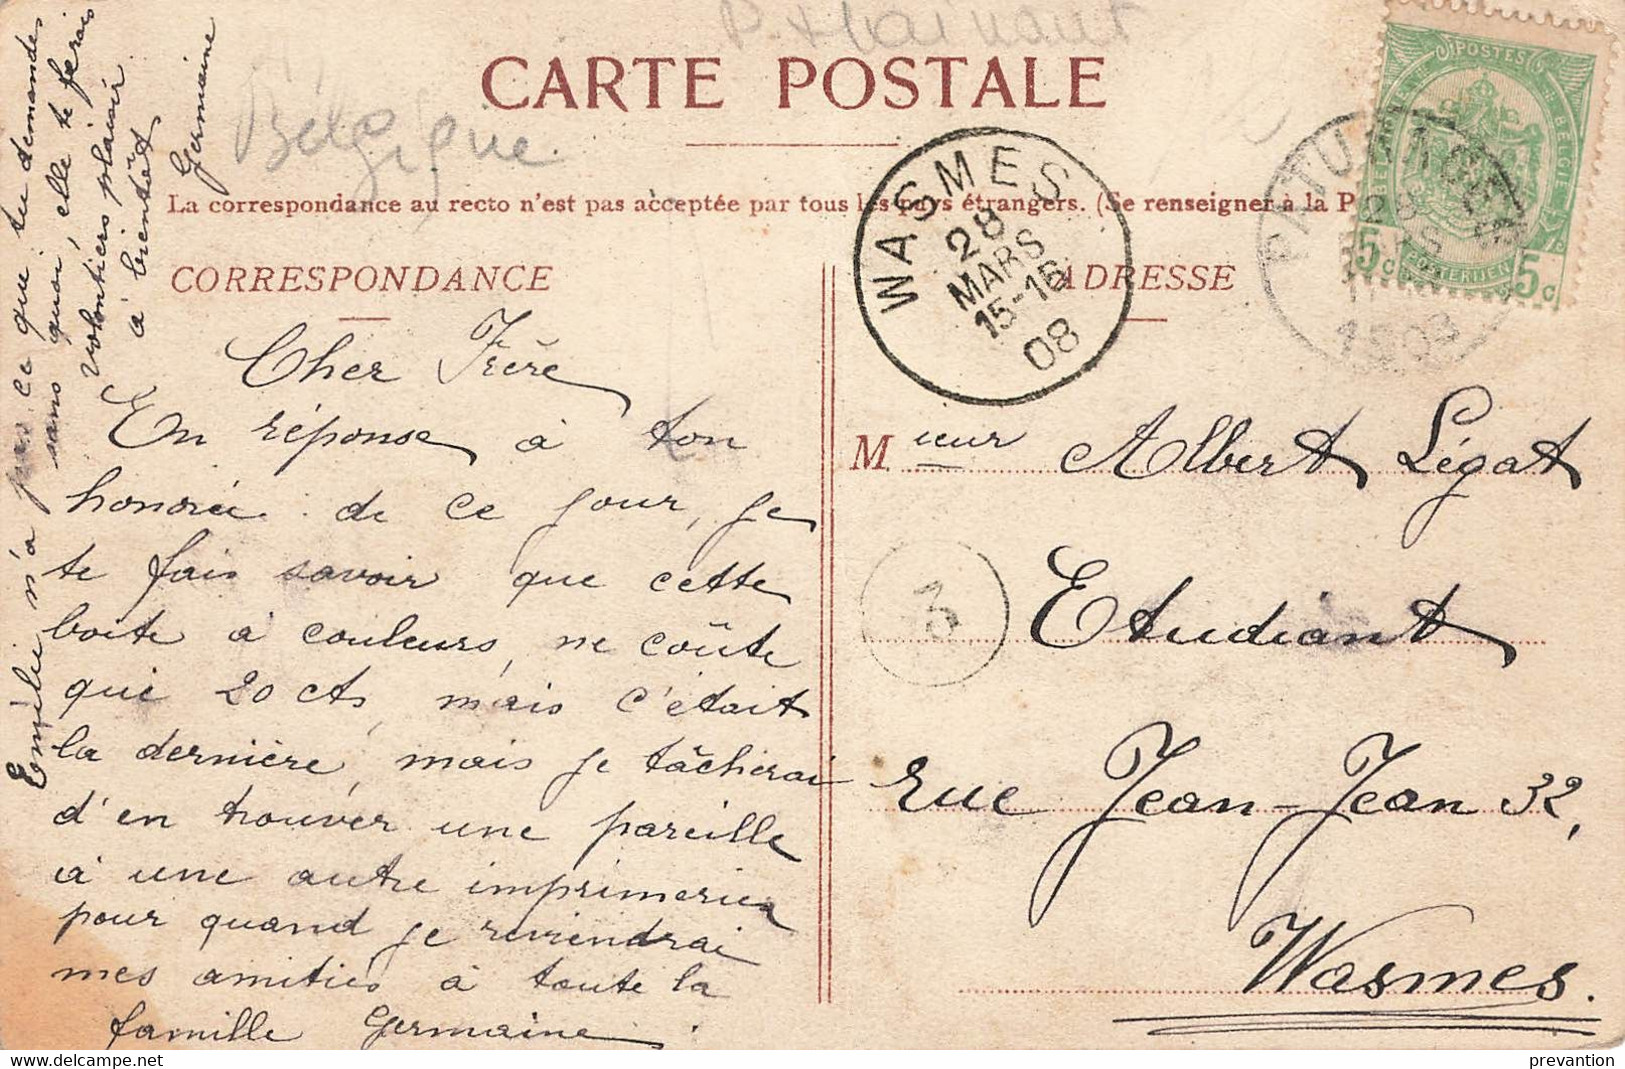 CARTE POSTALE
Belgique
La correspondance au recto n'est pas acceptée par tous les pays étrangers. (Se renseigner à la P
CORRESPONDANCE
ADRESSE
WASMES
28
MARS
15-16
08
PATURAGES
28
1908
POSTES
BELGIE
POSTERIJEN
5c
5c
Cher Frère
En réponse à ton
honorée de ce jour, je
te fais savoir que cette
boite à couleurs, ne coûte
que 20 cts, mais c'était
la dernière, mais je tâcherai
d'en trouver une pareille
à une autre imprimerie
pour quand je reviendrai
mes amitiés à toute la
famille Germaine
Emélie n'a pas ce que tu demandes
sans quoi, elle te ferais
volontiers plaisir
à bientôt
Germaine
Mieur Albert Légat
3
Etudiant
rue Jean-Jean 32,
Wasmes.
www.delcampe.net
prevantion